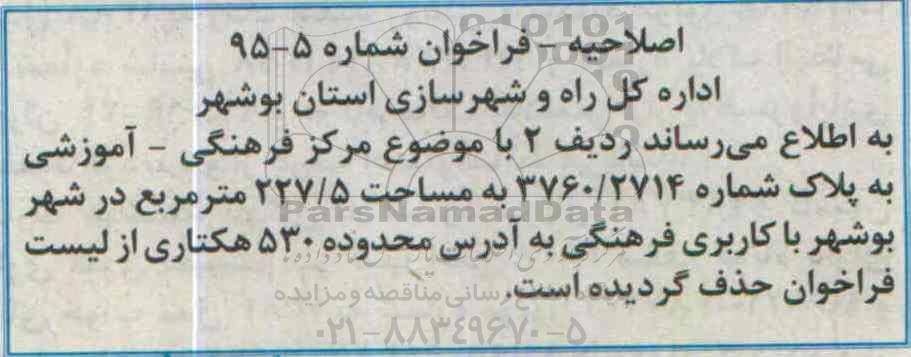 اصلاحیه - فراخوان شماره ۵-۹۵
اداره کل راه و شهرسازی استان بوشهر
به اطلاع می‌رساند ردیف ۲ با موضوع مرکز فرهنگی - آموزشی
به پلاک شماره ۳۷۶۰/۲۷۱۴ به مساحت ۲۲۷/۵ مترمربع در شهر
ParsNamadData
بوشهر با کاربری فرهنگی به آدرس محدوده ۵۳۰ هکتاری از لیست
فراخوان حذف گردیده است.
رسانی مناقصه و مزایده
۰۲۱-۸۸۳۴۹۶۷۰-۵